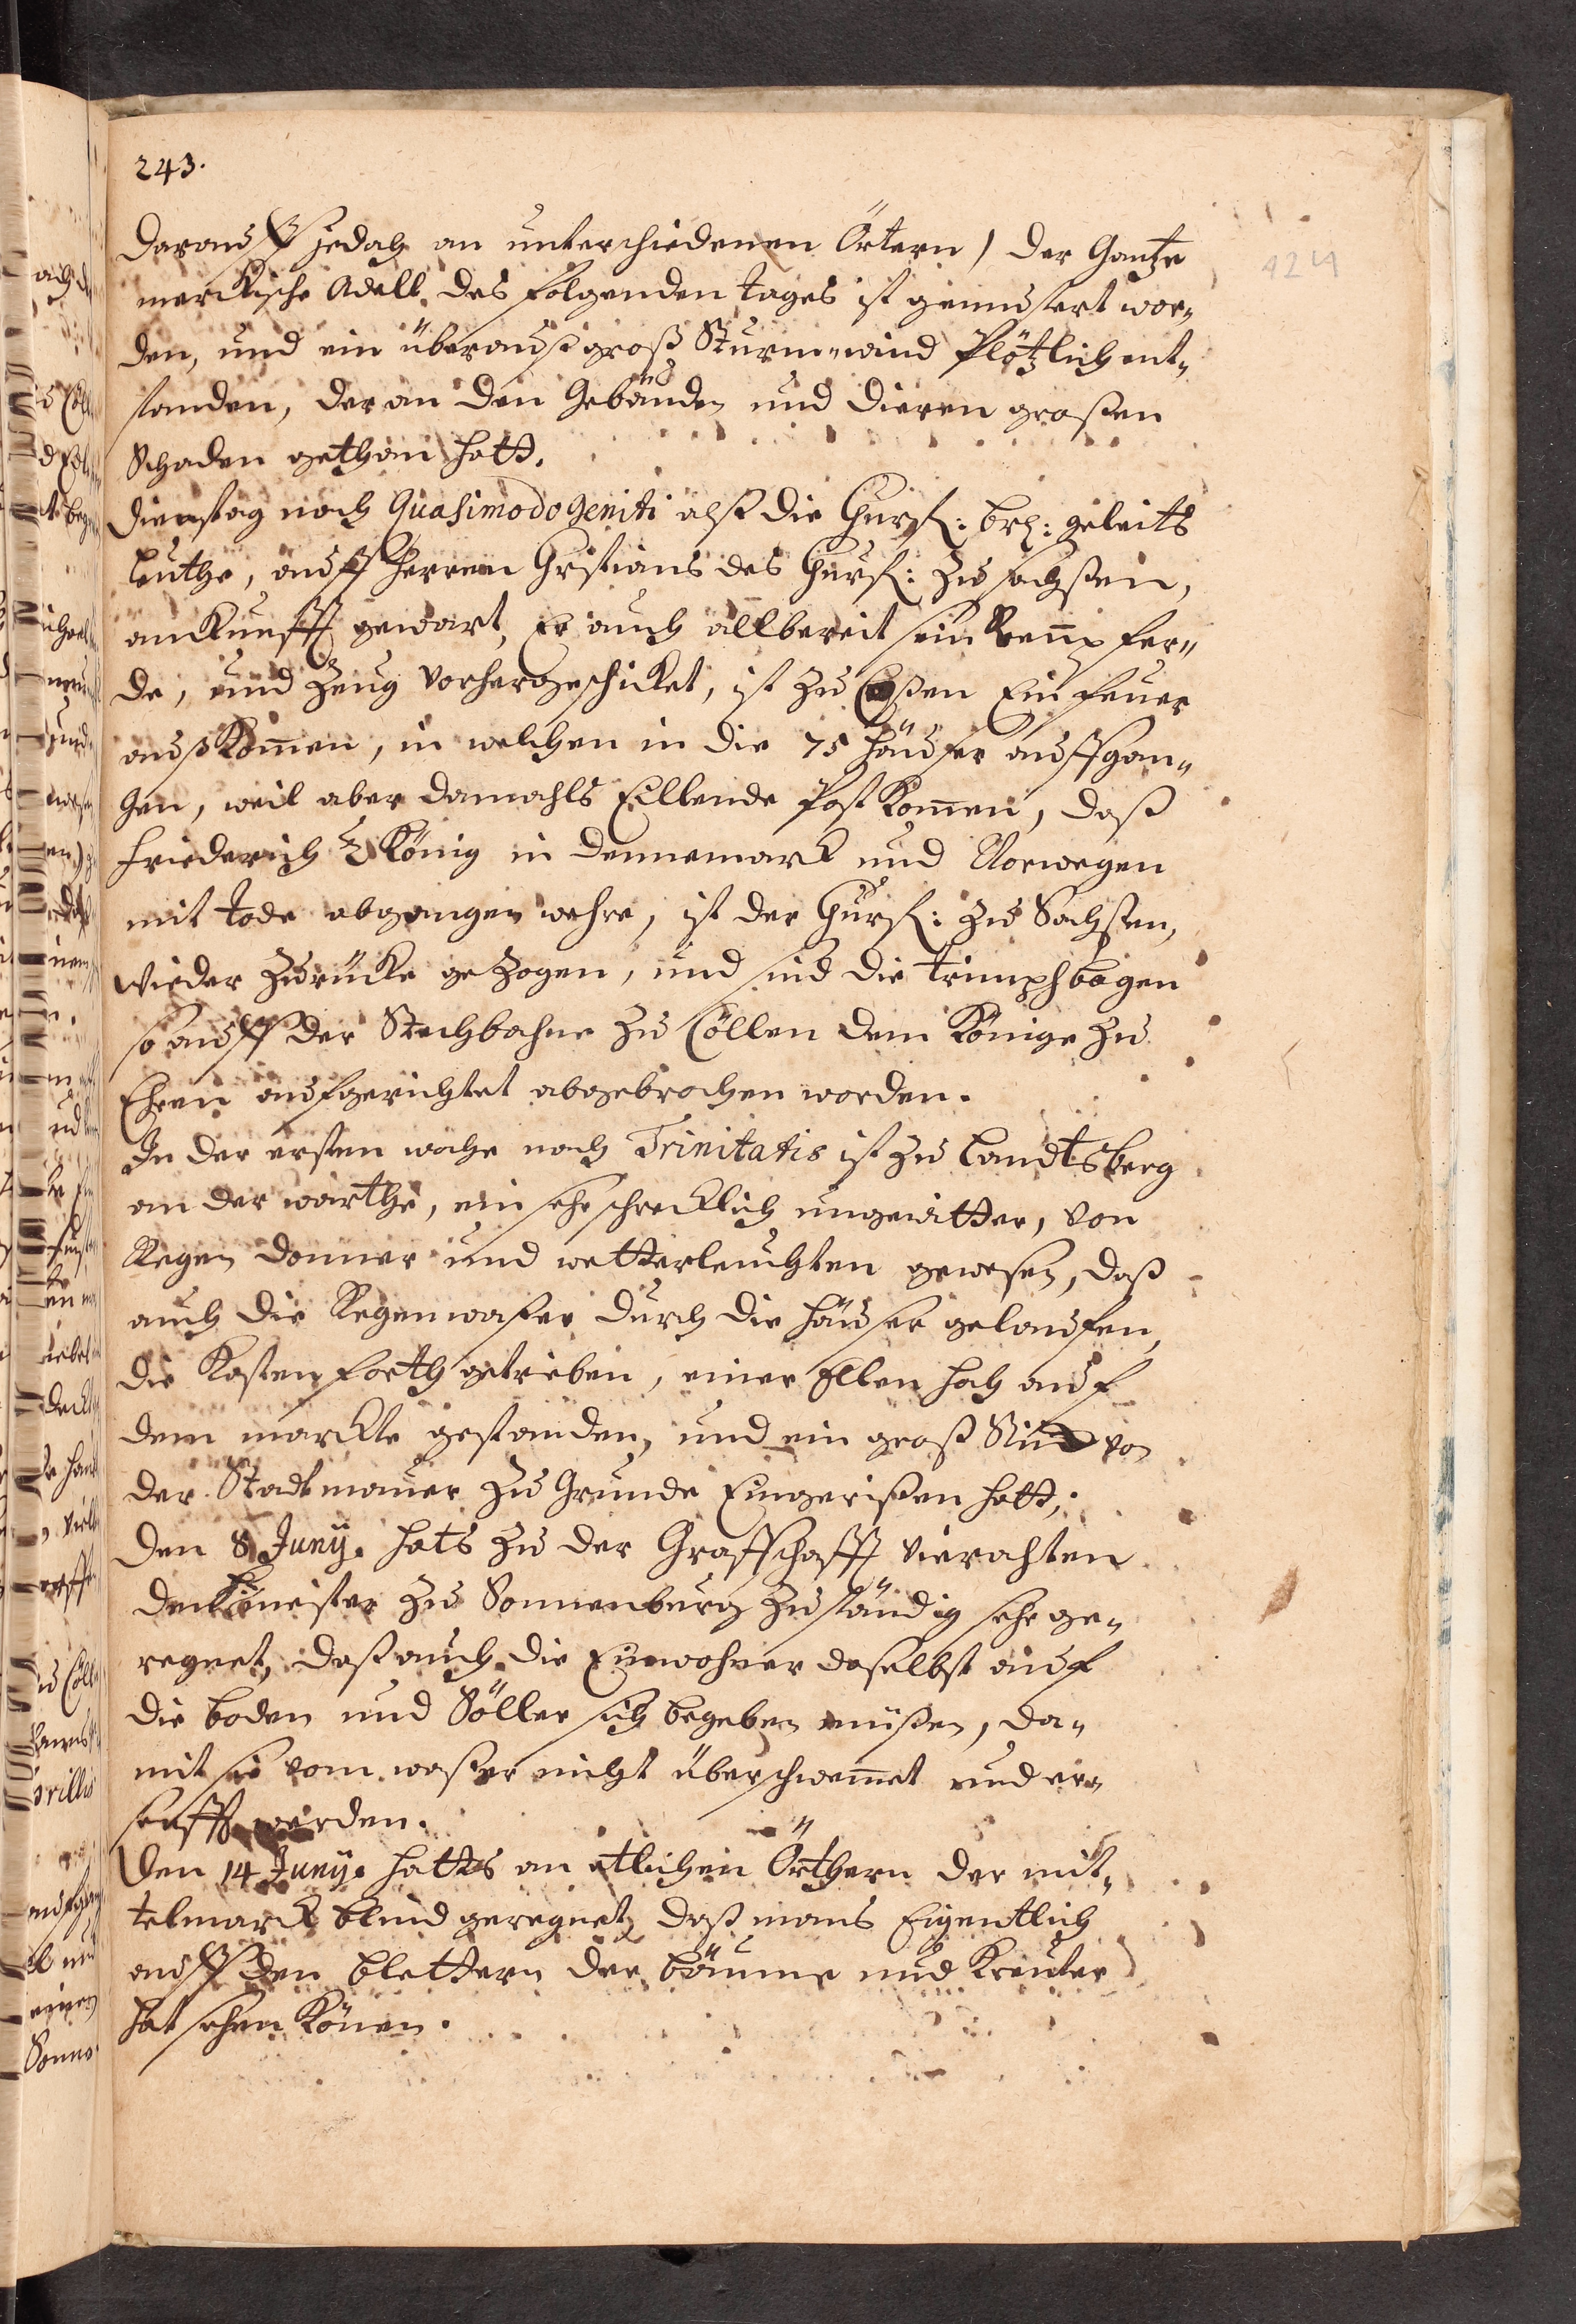 243.
424
Darauff jedoch an unterschiedenen Örtern) der Gantze
merckische Adell des folgenden tages ist gemustert wor„
den, und ein überauß groß Sturm„wind Plötzlich ent„
standen, der an den Gebäuden und Dieren großen
Schaden gethan hatt.
Dienstag nach Quasimodogeniti alß die Churf: Br: geleits
leuthe, auff Herren Christians des Churf: zu sachßen,
anckunfft gewart, Er auch allbereit sein Reñpfer„
de, und Zeug vorhergeschicket, ist zu Coßen Ein feuer
außkom̃en, in welchen in die 75 häuser auffgan„
gen, weil aber damahls Eillende Post kom̃en, daß
Friederich 2 König in dennemarck und Norwegen
mit tode abgangen wehre, ist der Churf: zu Sachsen,
wieder zurücke gezogen, und sind die triumphbögen
so auff der Stechbahne zu Cöllen dem Könige zu
Ehren aufgerichtet abgebrochen worden.
In der ersten woche nach Trinitatis ist zu Landtsberg
an der warthe, ein sehr schrecklich ungewitter, von
Regen donner und wetterleuchten gewesen, daß
auch die Regenwaßer durch die häuser gelauffen,
die Kasten forth getrieben, einer Ellen hoch auf
dem marckte gestanden, und ein groß Stück von
der Stadtmauer zu Grunde Eingerißen hatt,
Den 8 Junÿ. hats zu der Graffschafft Vierachten
dem H meister zu Sonnenburg zuständig sehr ge„
regnet, daß auch die Einwohner daselbst auf
die boden und Söller sich begeben müßen, da„
mit sie vom waßer nicht überschwem̃et und er„
seufft werden.
Den 14 Junÿ. hatts an etlichen Örthern der mit„
telmarck blud geregnet, daß mans Eigentlich
auff den blettern der bäume und Kreuter
hat sehen Könen.